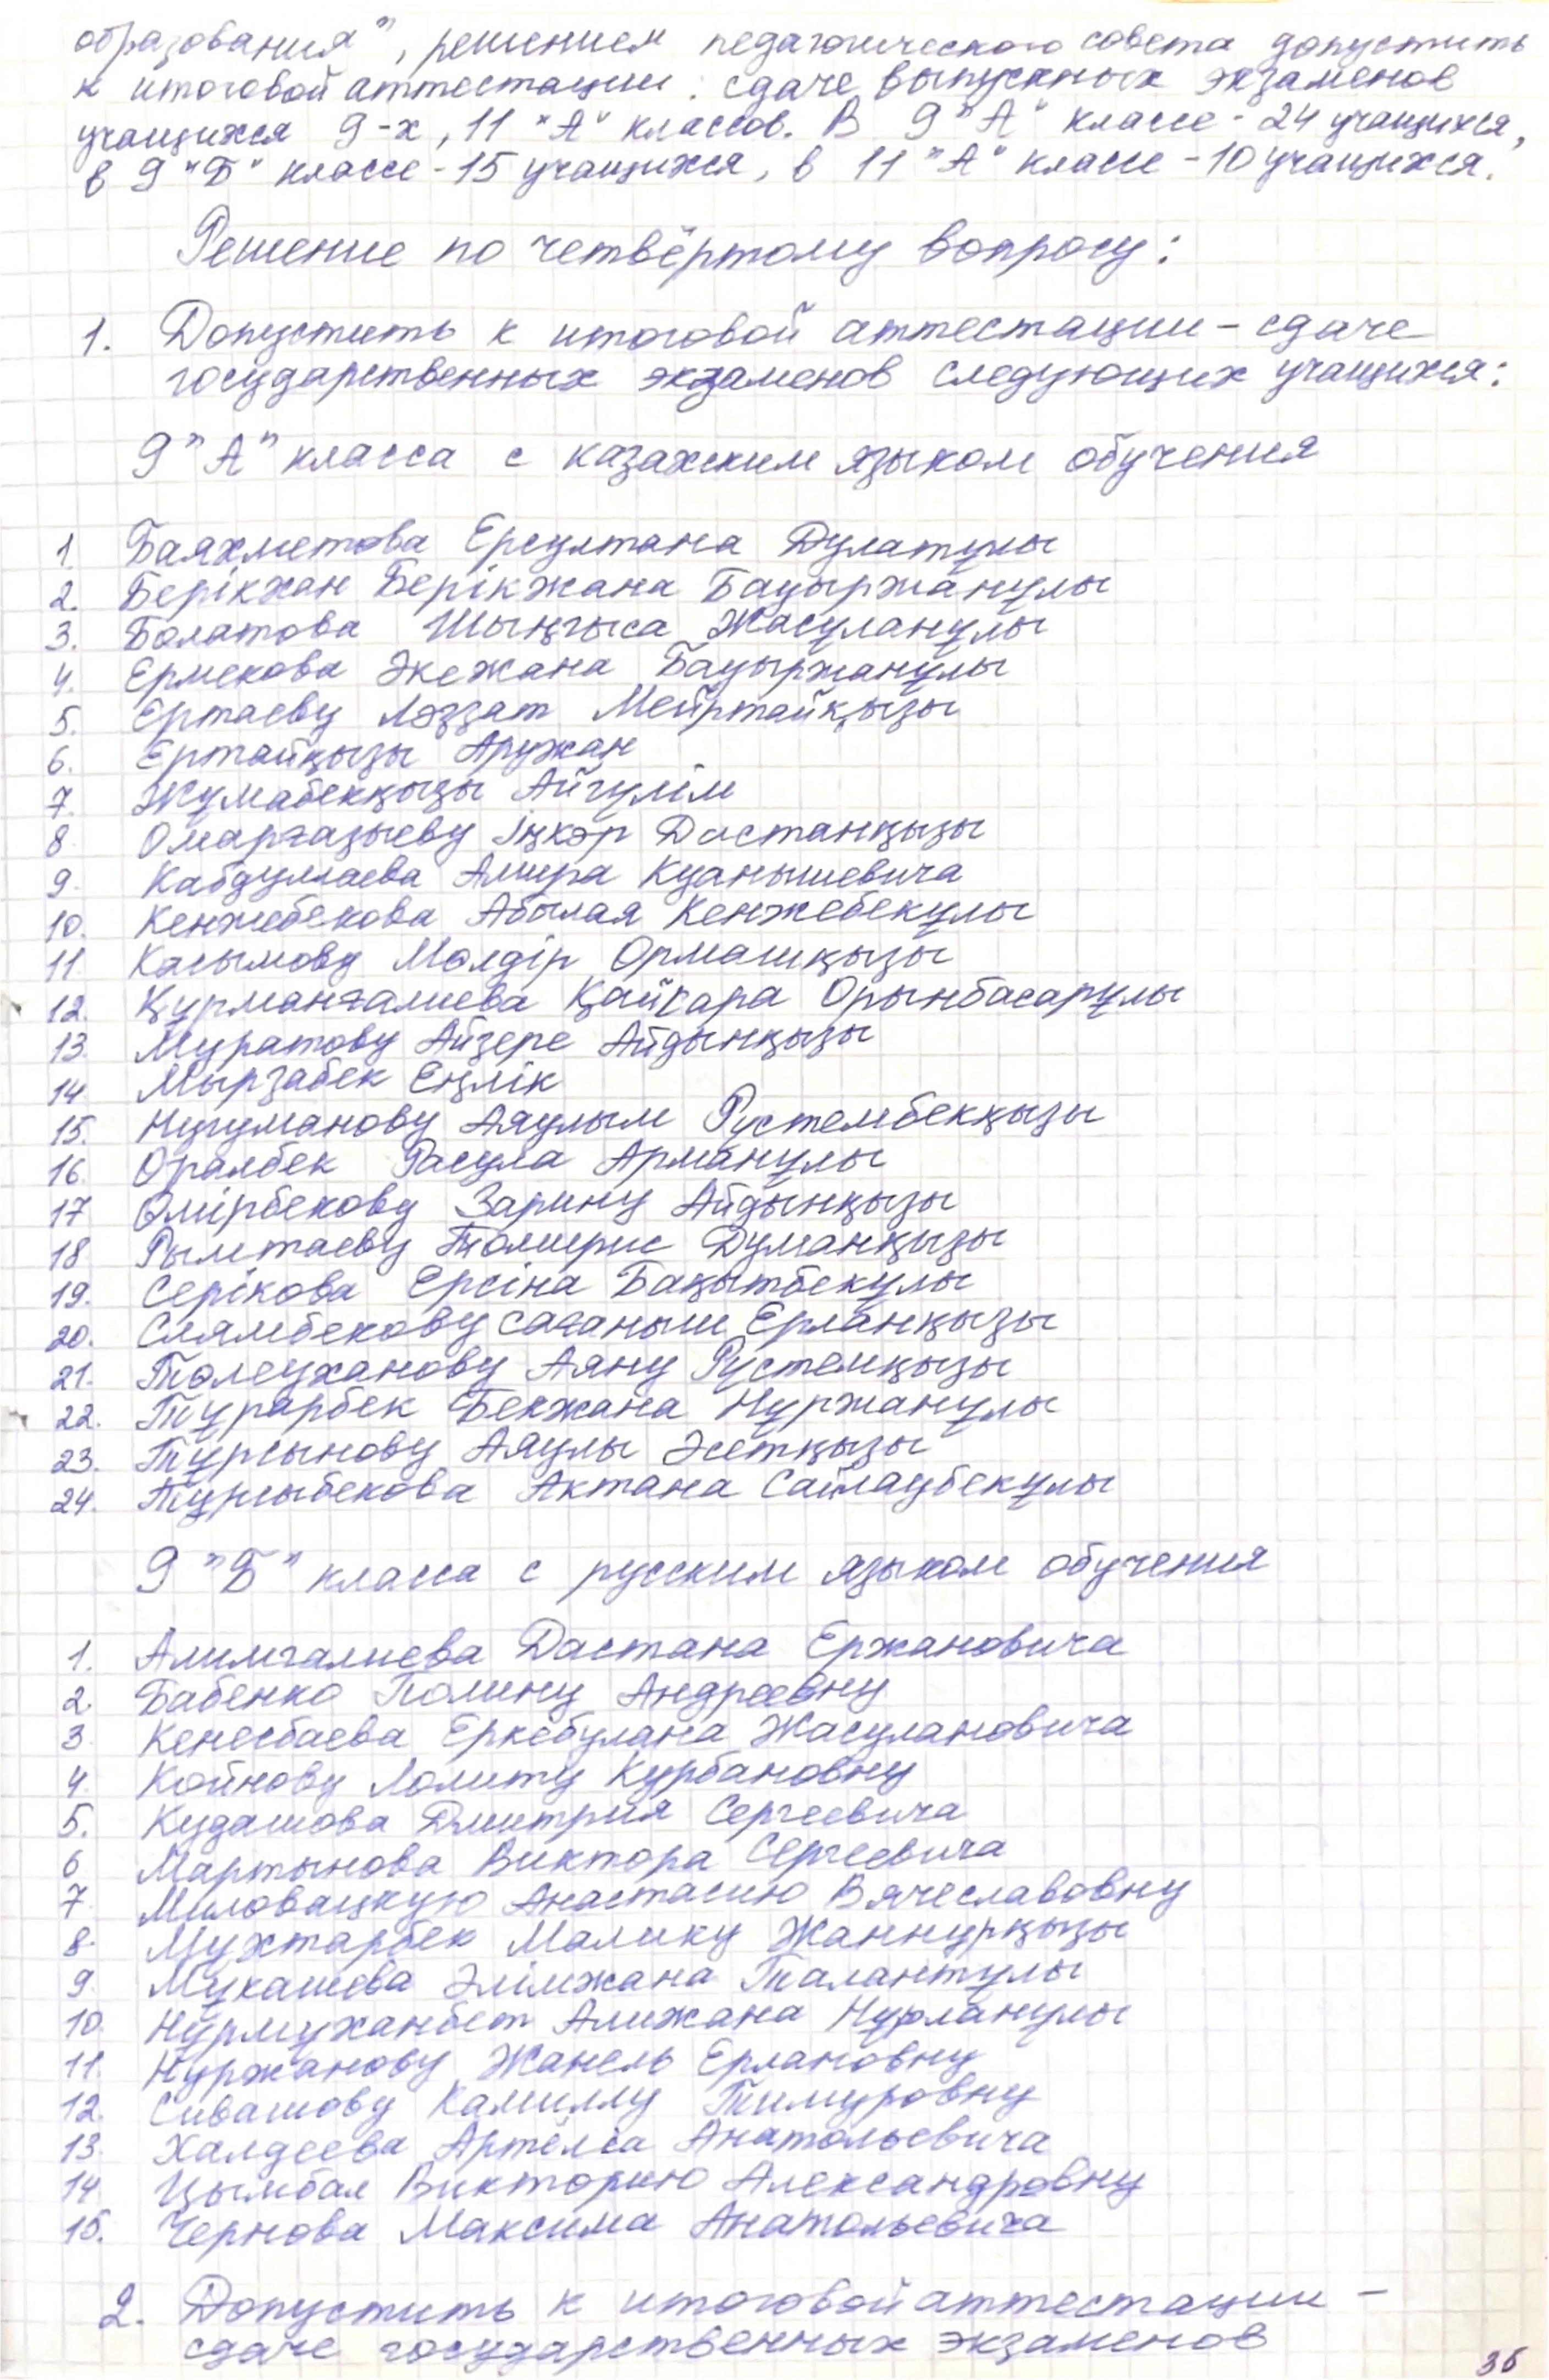 образования", решением педагогического совета допустить
к итоговой аттестации: сдаче выпускных экзаменов
учащихся 9-х, 11 "А" классов. В 9 "А" классе - 24 учащихся,
в 9 "Б" классе - 15 учащихся, в 11 "А" классе - 10 учащихся.
Решение по четвёртому вопросу:
1. Допустить к итоговой аттестации - сдаче
государственных экзаменов следующих учащихся:
9 "А" класса с казахским языком обучения
1. Баяхметова Ерсултана Дулатұлы
2. Берікхан Берікжана Бауыржанұлы
3. Болатова Шыңғыса Жасұланұлы
4. Ермекова Әкежана Бауыржанұлы
5. Ертаеву Ләззат Мейртайқызы
6. Ертайқызы Аружан
7. Жұмабекқызы Айгүлім
8. Омарғазыеву Іңкәр Дастанқызы
9. Кабдуллаева Амира Куанышевича
10. Кенжебекова Абылая Кенжебекұлы
11. Касымову Мөлдір Ормашқызы
12. Құрманғалиева Қайсара Орынбасарұлы
13. Муратову Айзере Айдынқызы
14. Мырзабек Еңлік
15. Нугуманову Аяулым Рустембекқызы
16. Оралбек Расула Арманұлы
17. Өмірбекову Зарину Айдынқызы
18. Рымтаеву Томирис Думанқызы
19. Серікова Ерсіна Бақытбекұлы
20. Слямбекову Сағаныш Ерланқызы
21. Төлеуханову Аяну Рустемқызы
22. Тұрарбек Бекжана Нұржанұлы
23. Тұрсынову Аяулы Әсетқызы
24. Тұрсыбекова Актана Сайлаубекұлы
9 "Б" класса с русским языком обучения
1. Алимгалиева Дастана Ержановича
2. Бабенко Полину Андреевну
3. Кенесбаева Еркебулана Жасулановича
4. Койнову Лолиту Курбановну
5. Кудашова Дмитрия Сергеевича
6. Мартынова Виктора Сергеевича
7. Миловацкую Анастасию Вячеславовну
8. Мухтарбек Малику Жаннурқызы
9. Мукашева Әлімжана Талантұлы
10. Нұрмуханбет Алижана Нұрланұлы
11. Нуржанову Жанель Ерлановну
12. Сивашову Камиллу Тимуровну
13. Халдеева Артёма Анатольевича
14. Цымбал Викторию Александровну
15. Чернова Максима Анатольевича
2. Допустить к итоговой аттестации -
сдаче государственных экзаменов
36